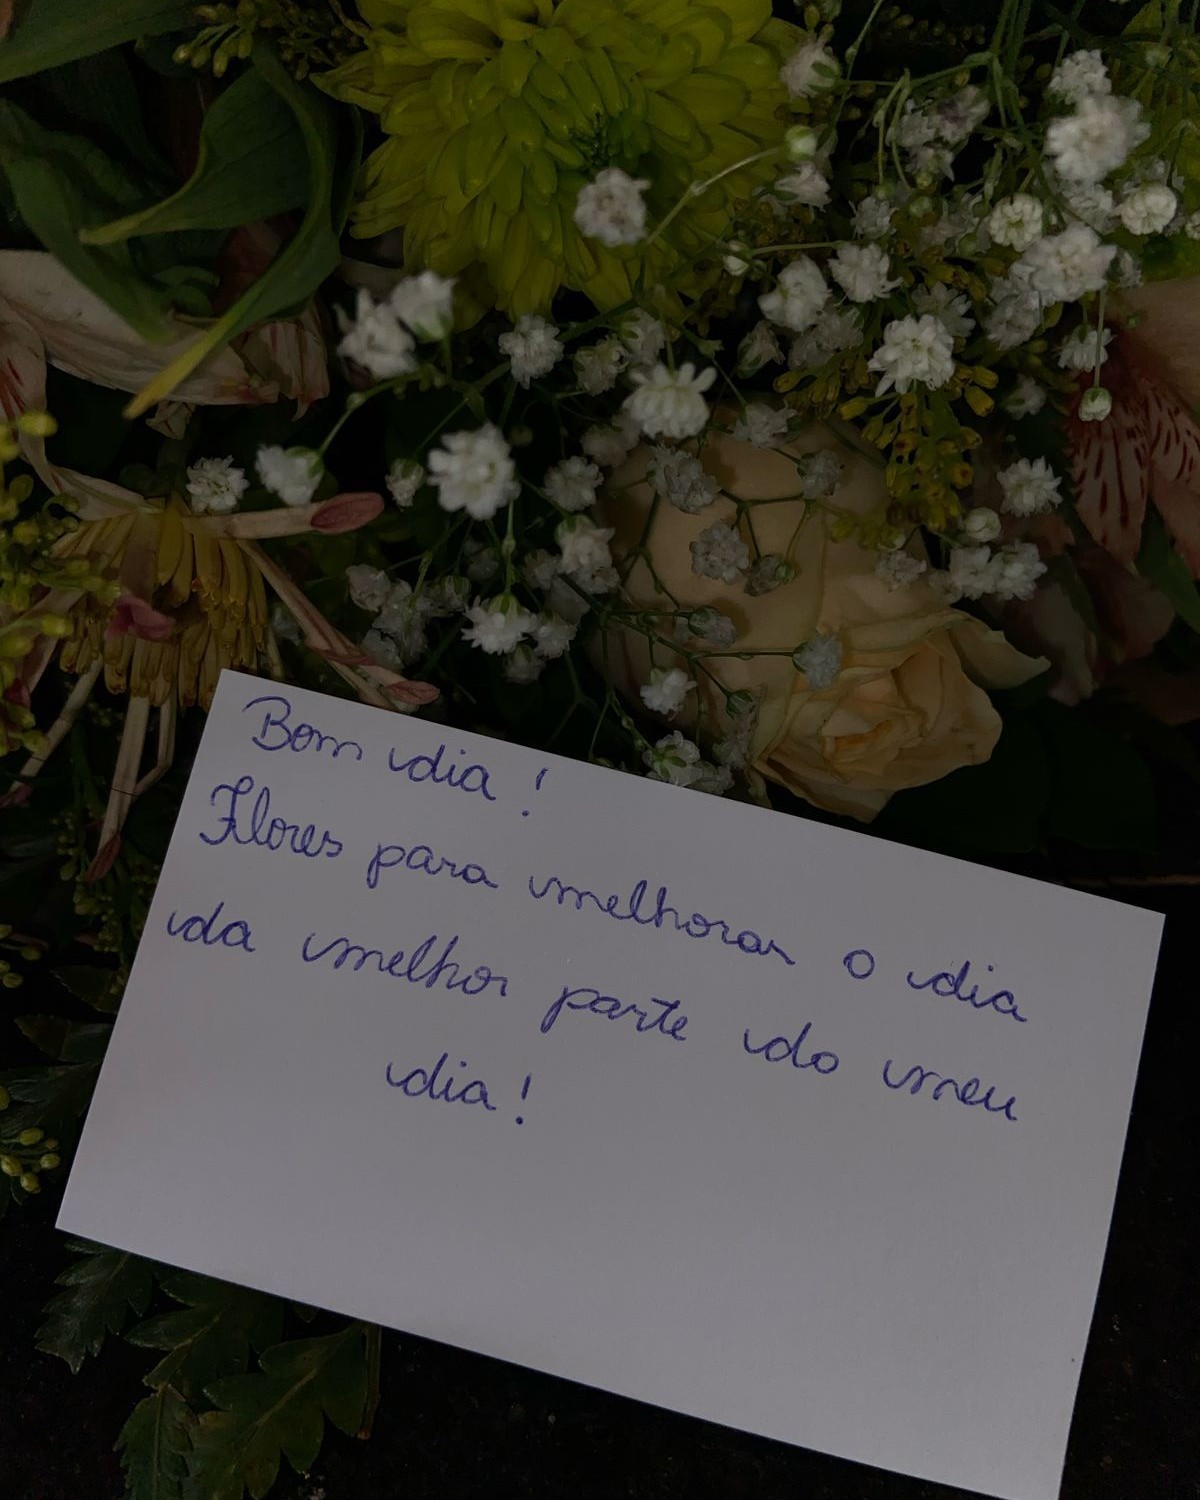 Bom dia!
Flores para melhorar o dia
da melhor parte do meu
dia!